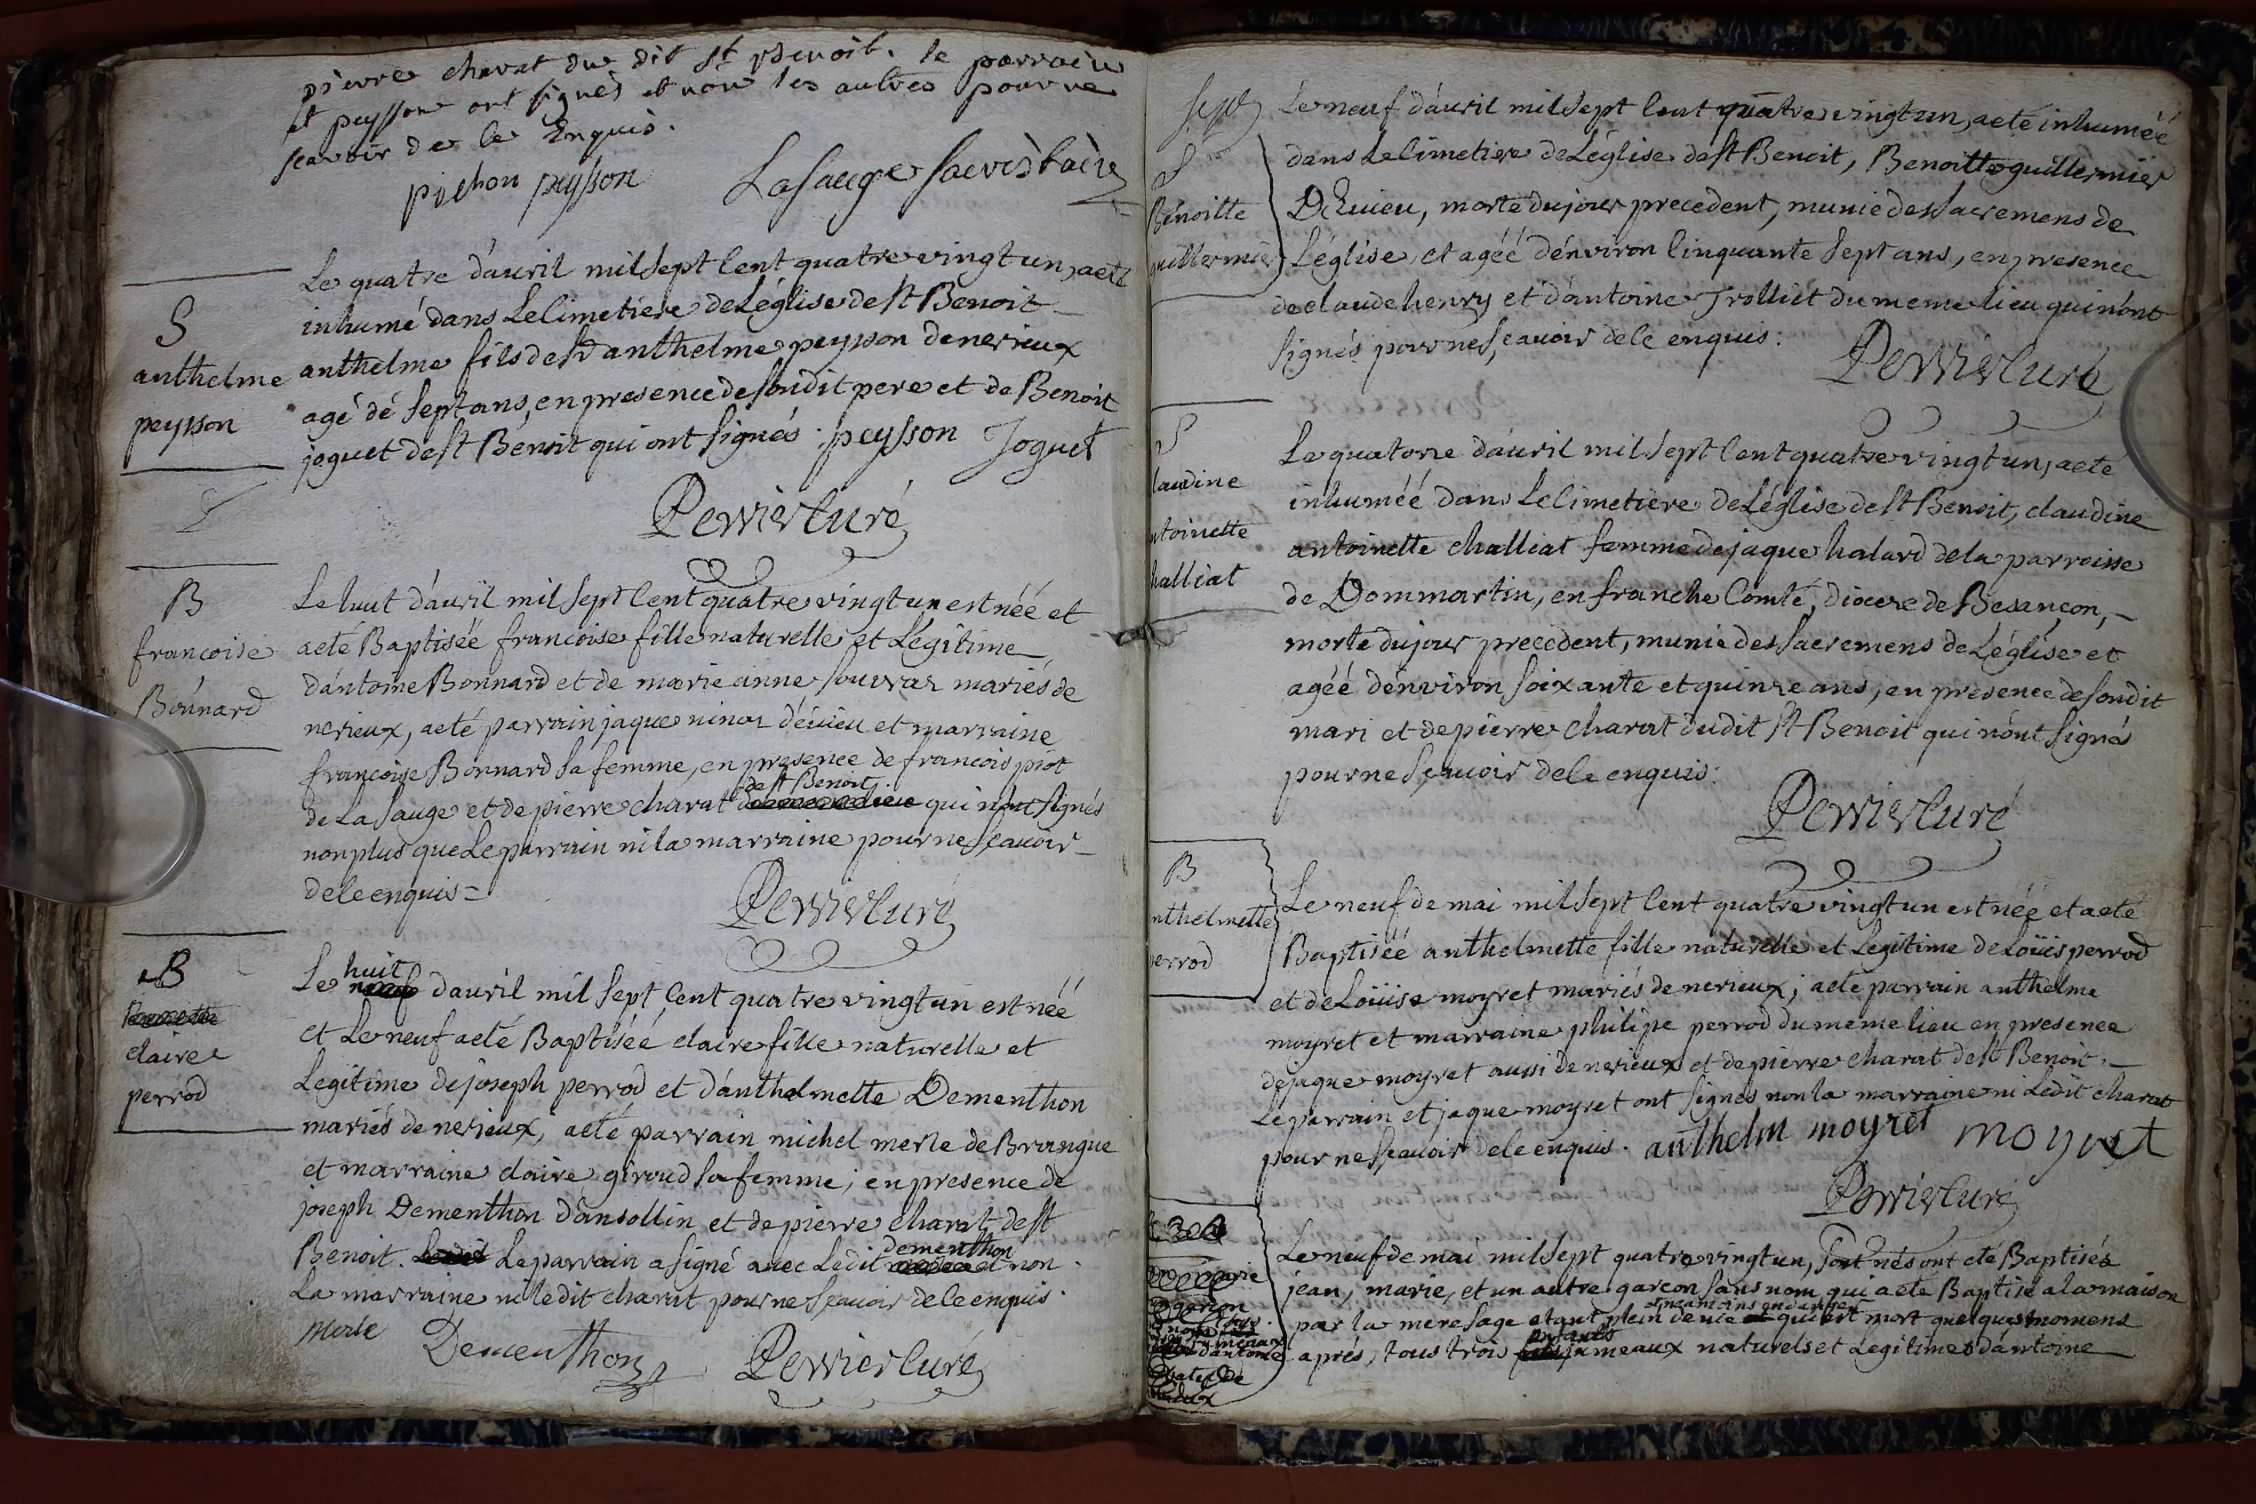 pierre charat du dit st Benoit. le parrain
et peysson ont signés et non les autres pour ne
scavoir de ce Enquis.
pichon peysson Lasauge sacristain
S
anthelme
peysson
Le quatre d'auril mil sept Cent quatre vingt un, a eté
inhumé dans Le Cimetiere de L'église de st Benoit
anthelme fils de sr anthelme peysson de nerieux
agé dé sept ans, en presence de son dit pere et de Benoit
joguet de st Bénoit qui ont signés : peysson Joguet
Perrier Curé
B
francoise
Bonnard
Le huit d'auril mil sept Cent quatre vingt un est néé et
a eté Baptiséé francoise fille naturelle et Légitime
d'antoine Bonnard et de marie anne souvraz mariés de
nerieux, a eté parrain jaque ninoz d'éuieu et marraine
francoise Bonnard sa femme, en presence de francois piot
de st Benoit
de La sauge et de pierre charat qui n'ont signés
non plus que Le parrain ni la marraine pour ne scauoir
de ce enquis =
Perrier Curé
B
claire
perrod
huit
Le neuf d'auril mil sept Cent quatre vingt un est néé
et Le neuf a eté Baptiséé claire fille naturelle et
Legitime de joseph perrod et d'anthelmette Dementhon
mariés de nerieux, a eté parrain michel merle de Brangue
et marraine claire giroud sa femme, en presence de
joseph Dementhon d'ansollin et de pierre charat de st
dementhon
Benoit. Le parrain a signé auec Ledit et non
La marraine ni ledit charat pour ne scauoir de ce enquis.
merle Dementhon Perrier Curé
sept
S
Bénoitte
guillermier
Le neuf d'auril mil sept Cent quatre vingt un, a eté inhuméé
dans Le Cimetiere de L'église de st Benoit, Benoitte guillermier
D'Euieu, morte du jour precedent, munie des sacremens de
L'église, et agéé d'énviron Cinquante sept ans, en presence
de claude henry et d'antoine Trolliet du meme lieu qui n'ont
signés pour ne scauoir de ce enquis :
Perrier Curé
S
laudine
ntoinette
halliat
Le quatorze d'auril mil sept Cent quatre vingt un, a eté
inhuméé dans Le Cimetiere de L'église de st Benoit, claudine
antoinette challiat femme de jaque halard de la parroisse
de Dommartin, en franche Comté, diocese de Besançon,
morte du jour precedent, munie des sacremens de L'église et
agéé d'énviron soixante et quinze ans, en presence de son dit
mari et de pierre charat du dit st Benoit qui n'ont signés
pour ne scauoir de ce enquis :
Perrier Curé
B
nthelmette
perrod
Le neuf de mai mil sept Cent quatre vingt un est néé et a eté
Baptiséé anthelmette fille naturelle et Legitime de Loüis perrod
et de Loüise moyret mariés de nerieux ; a eté parrain anthelme
moyret et marraine philipe perrod du meme lieu en presence
de jaque moyret aussi de nerieux et de pierre charat de st Benoit.
Le parrain et jaque moyret ont signés non la marraine ni Ledit charat
pour ne scauoir de ce enquis. anthelm moyret moyret
Perrier Curé
marie
garcon
Le neuf de mai mil sept quatre vingt un, sont nés ont eté Baptisés
jean, marie, et un autre garcon sans nom, qui a eté Baptisé a la maison
neanmoins en danger
par la mere sage etant plein de vie qui est mort quelques momens
enfants
aprés, tous trois jumeaux naturels et Legitimes d'antoine